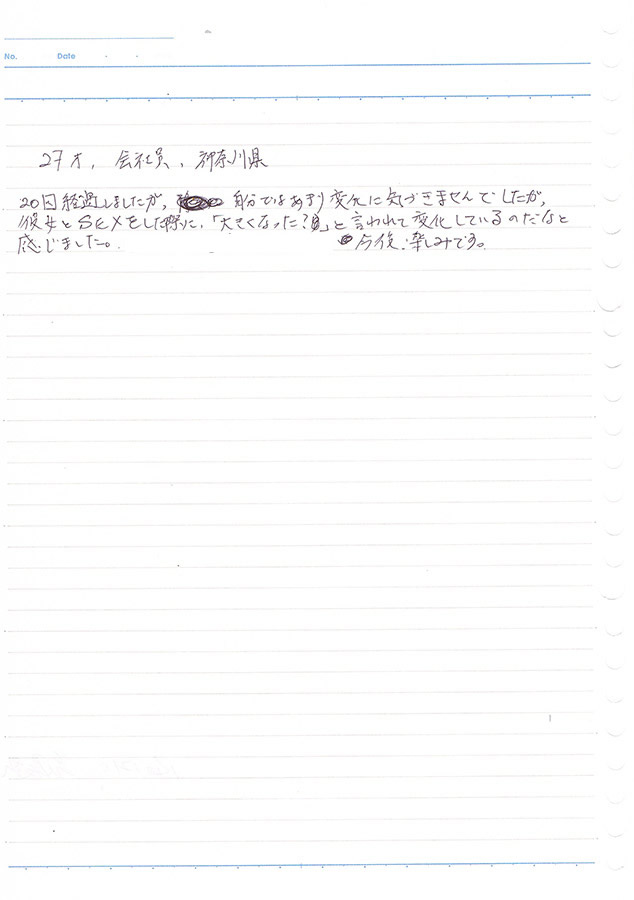 No. Date
27才、会社員、神奈川県
20回経過しましたが、自分ではあまり変化に気づきませんでしたが、
彼女とSEXをした際に、「大きくなった?」と言われて変化しているのだなと
感じました。 今後、楽しみです。